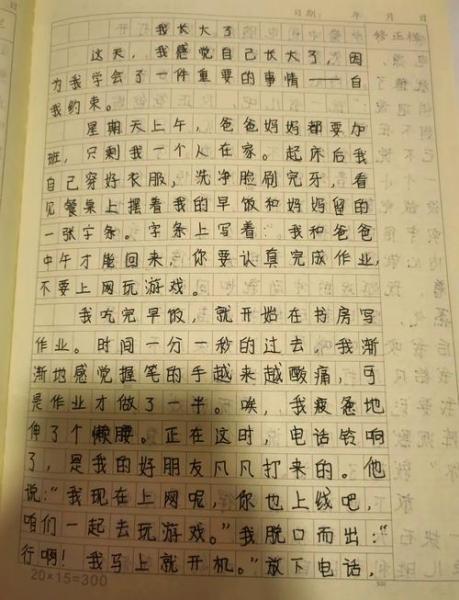 日期： 年 月 日
我长大了
这天，我感觉自己长大了，因
为我学会了一件重要的事情——自
我约束。
星期天上午，爸爸妈妈都要加
班，只剩我一个人在家。起床后我
自己穿好衣服，洗净脸刷完牙，看
见餐桌上摆着我的早饭和妈妈留的
一张字条。字条上写着：“我和爸爸
中午才能回来，你要认真完成作业，
不要上网玩游戏。
我吃完早饭，就开始在书房写
作业。时间一分一秒的过去，我渐
渐地感觉握笔的手越来越酸痛，可
是作业才做了一半。唉，我疲惫地
伸了个懒腰。正在这时，电话铃响
了，是我的好朋友凡凡打来的。他
说：“我现在上网呢，你也上线吧，
咱们一起去玩游戏。”我脱口而出：“
行啊！我马上就开机。”放下电话，
20×15=300
修正栏